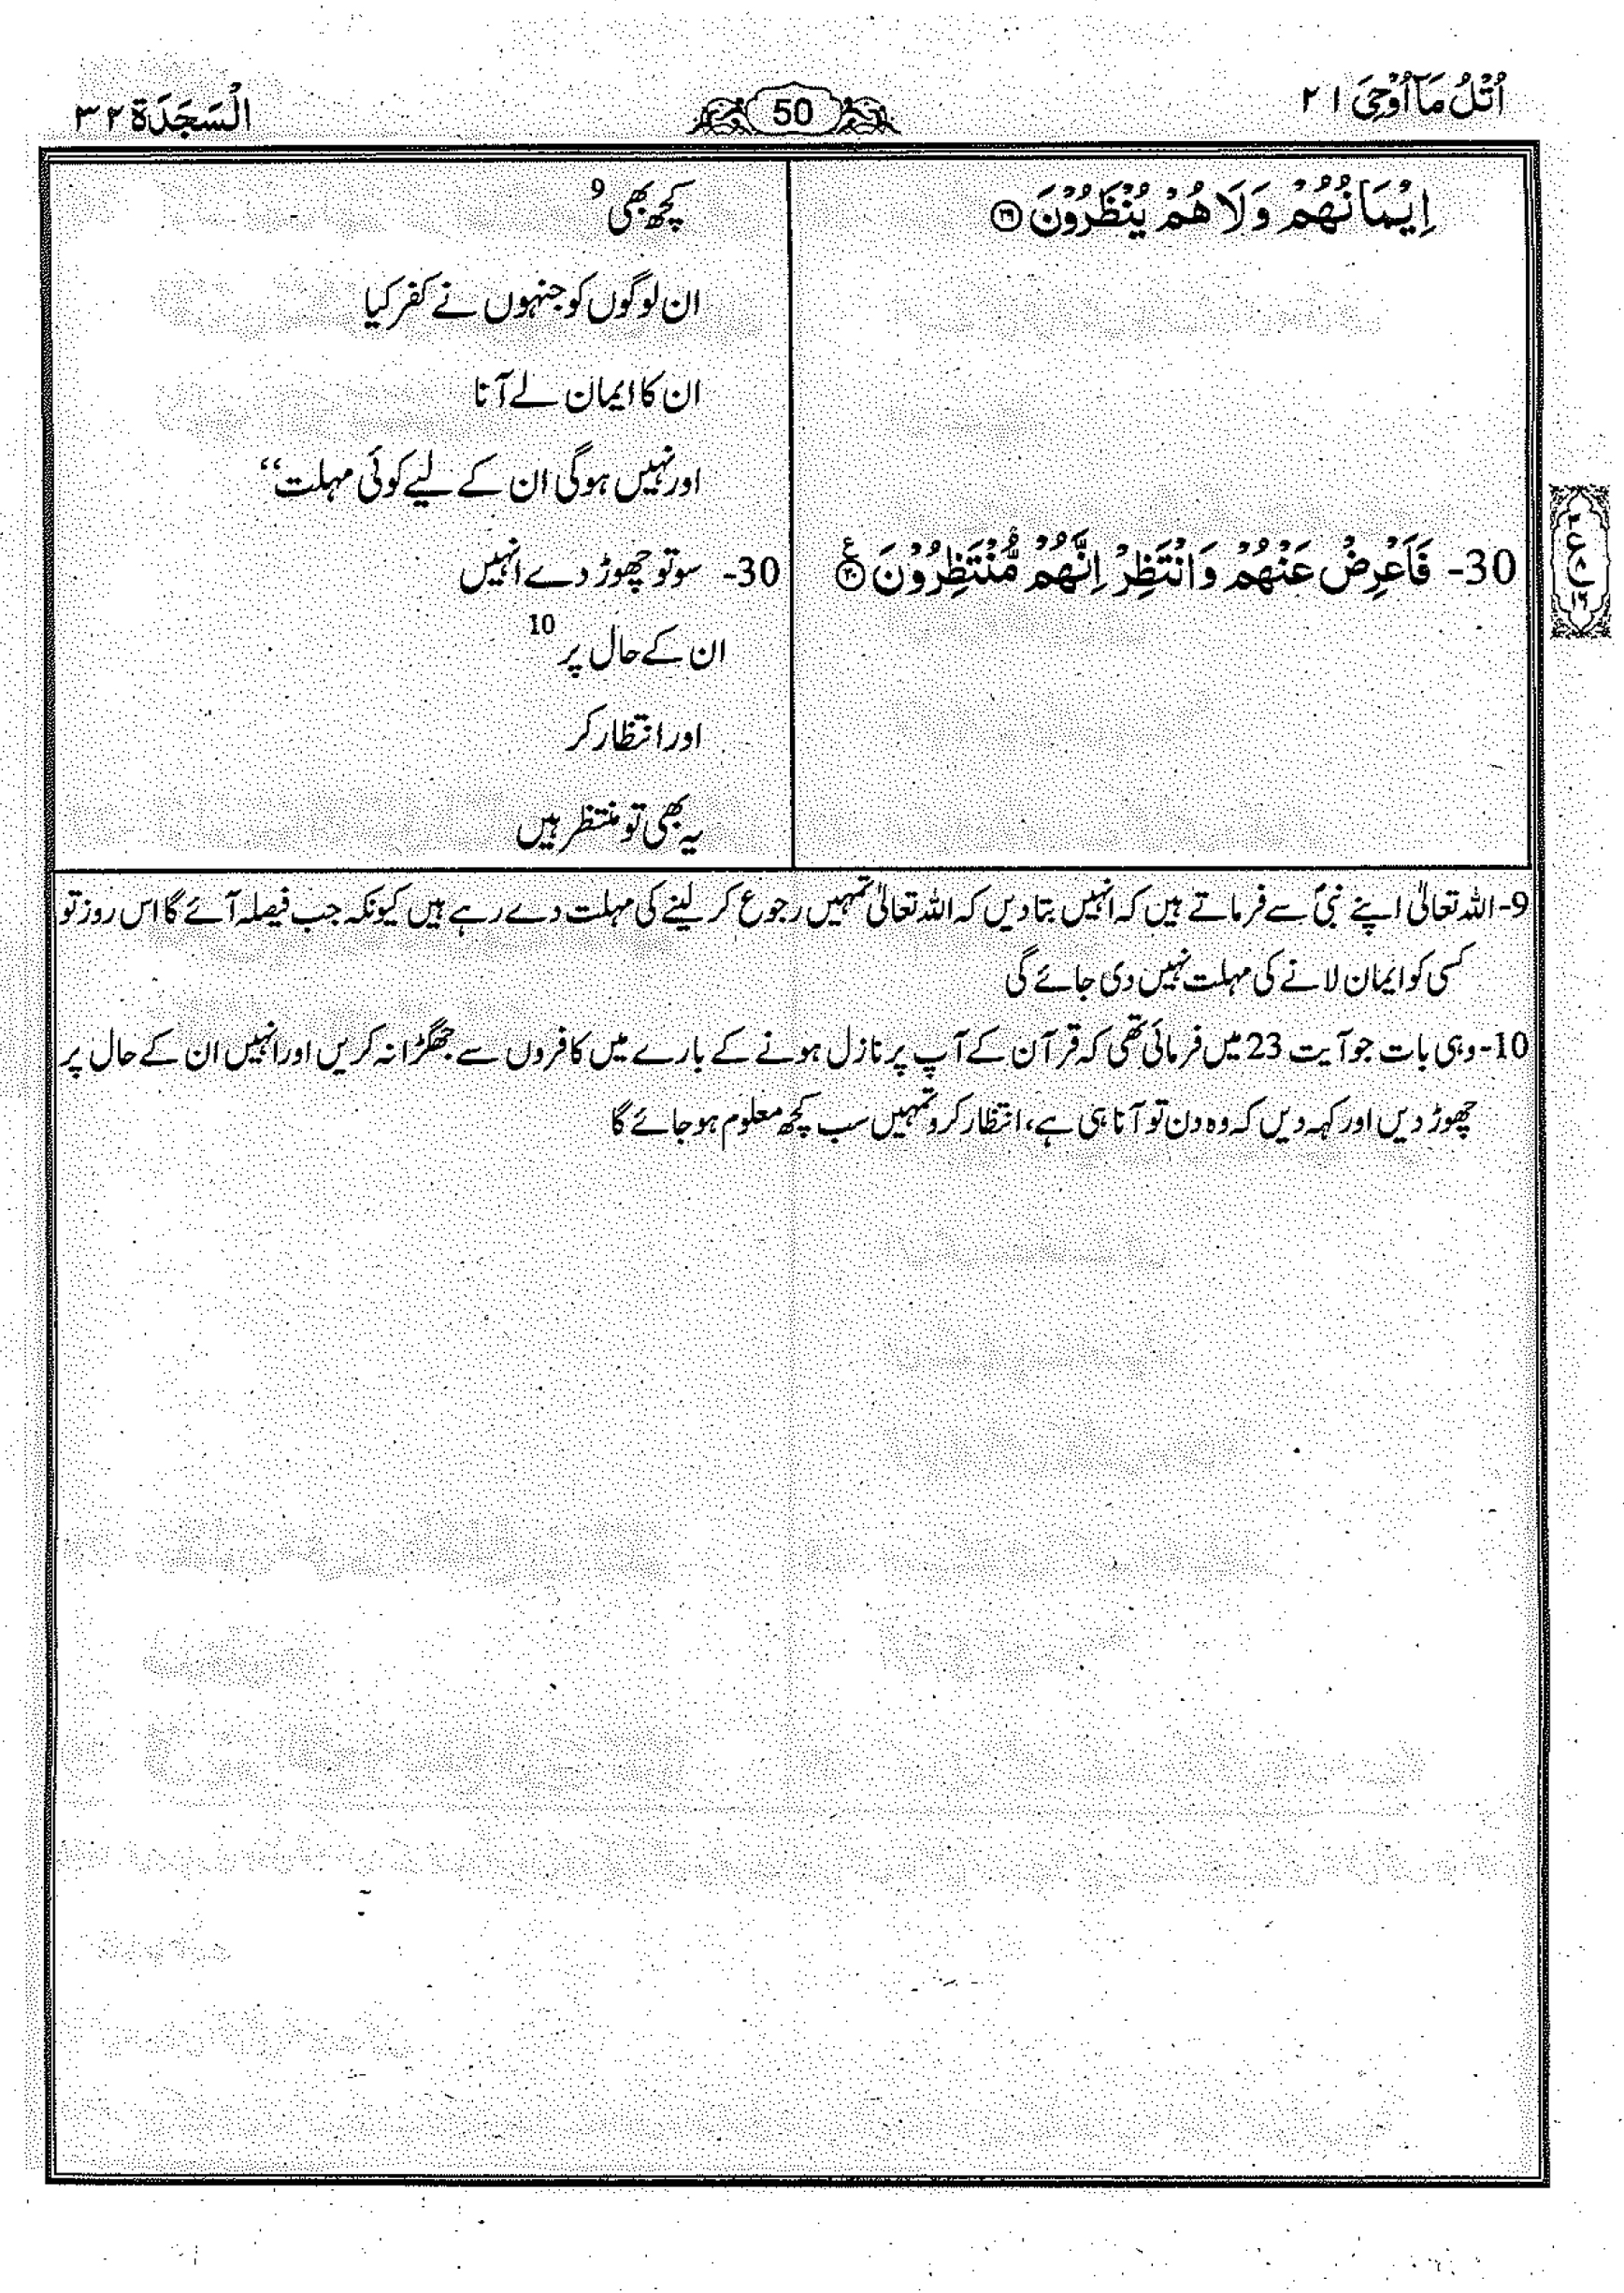 اُتْلُ مَاۤ اُوْحِیَ ۲۱
50
اَلسَّجْدَة ۳۲
اِیْمَانُهُمْ وَلَا هُمْ یُنْظَرُوْنَ ۝۲۹
30- فَاَعْرِضْ عَنْهُمْ وَانْتَظِرْ اِنَّهُمْ مُّنْتَظِرُوْنَ ۝۳۰ ع
کچھ بھی 9
ان لوگوں کو جنہوں نے کفر کیا
ان کا ایمان لے آنا
اور نہیں ہوگی ان کے لیے کوئی مہلت‘‘
30- سو تو چھوڑ دے انہیں
ان کے حال پر 10
اور انتظار کر
یہ بھی تو منتظر ہیں
9- اللہ تعالیٰ اپنے نبیؐ سے فرماتے ہیں کہ انہیں بتا دیں کہ اللہ تعالیٰ تمہیں رجوع کر لینے کی مہلت دے رہے ہیں کیونکہ جب فیصلہ آئے گا اس روز تو
کسی کو ایمان لانے کی مہلت نہیں دی جائے گی
10- وہی بات جو آیت 23 میں فرمائی تھی کہ قرآن کے آپ پر نازل ہونے کے بارے میں کافروں سے جھگڑا نہ کریں اور انہیں ان کے حال پر
چھوڑ دیں اور کہہ دیں کہ وہ دن تو آنا ہی ہے، انتظار کرو تمہیں سب کچھ معلوم ہو جائے گا